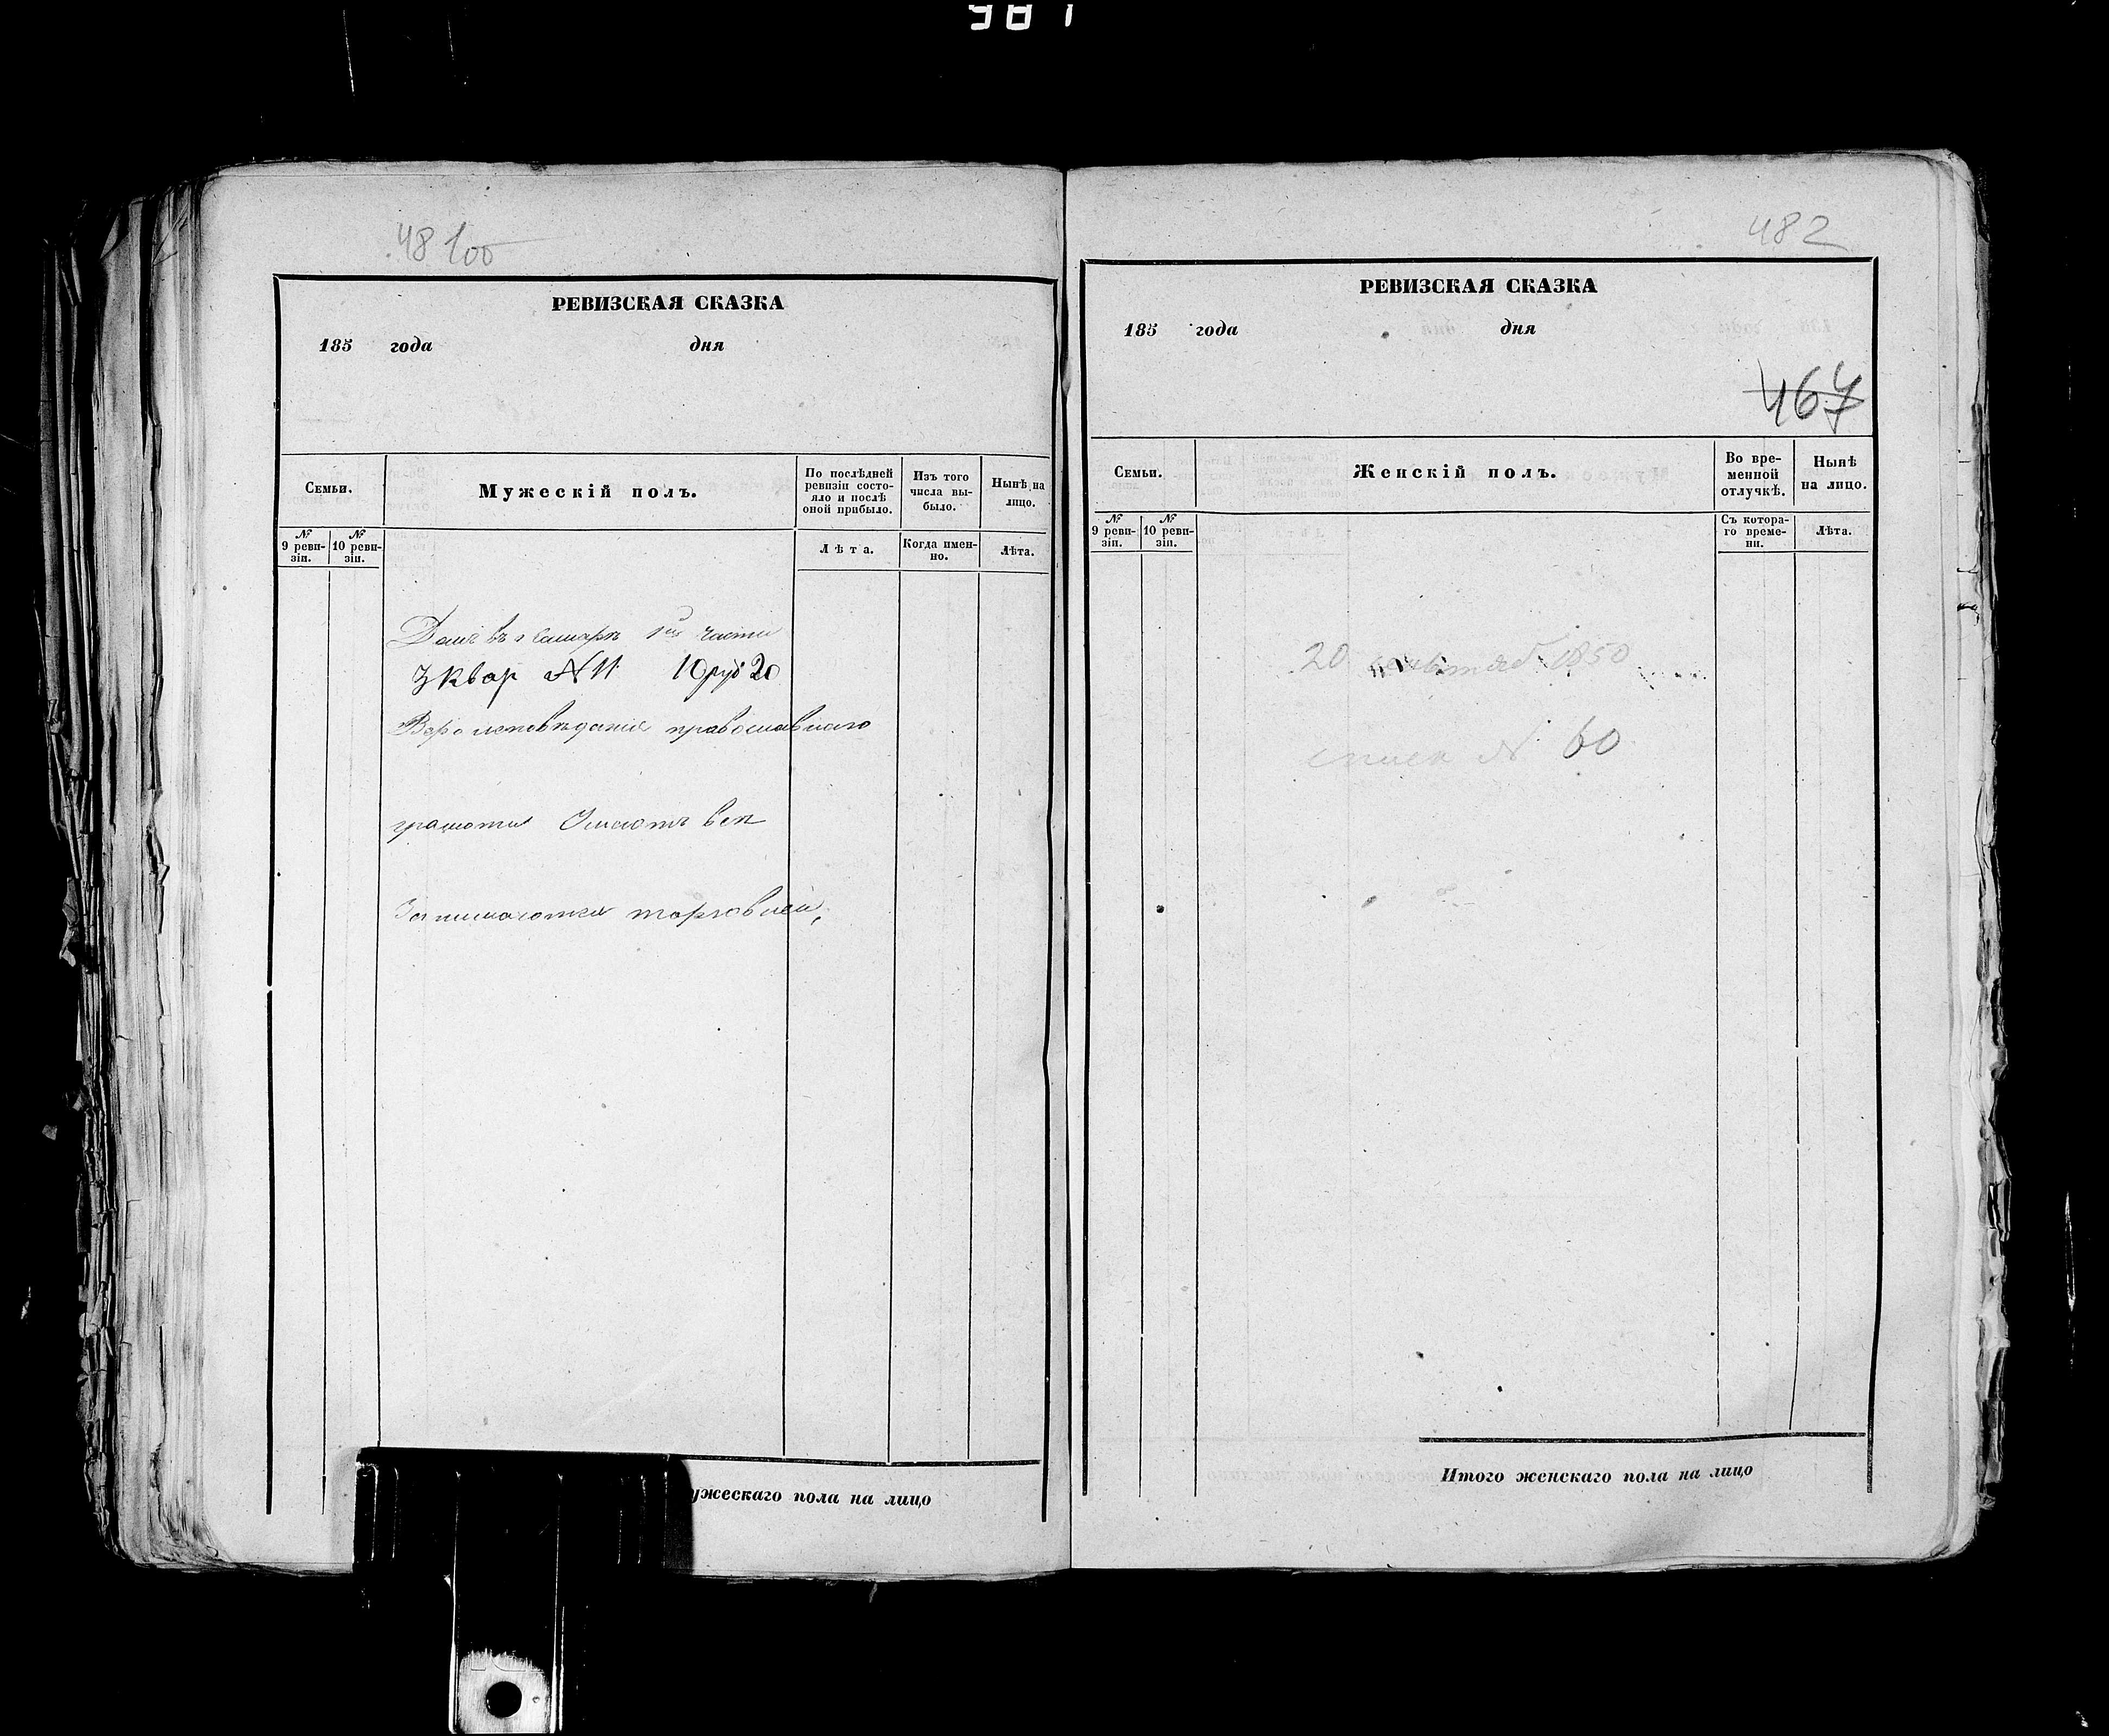 48 1об
РЕВИЗСКАЯ СКАЗКА
185 года дня
Семьи.
Мужескій полъ.
По послѣдней
ревизіи состо-
яло и послѣ
оной прибыло.
Изъ того
числа вы-
было.
Нынѣ на
лицо.
№
9 реви-
зіи.
№
10 реви-
зіи.
Лѣта.
Когда имен-
но.
Лѣта.
Домъ въ г Самарѣ 1й части
3 квар № 11 10 руб 20
Вероисповѣданія православнаго
грамоты Имеютъ всѣ
Занимаются торговлей,
ужескаго пола на лицо
482
РЕВИЗСКАЯ СКАЗКА
185 года дня
467
Семьи.
Женскій полъ.
Во вре-
менной
отлучкѣ.
Нынѣ
на лицо.
№
9 реви-
зіи.
№
10 реви-
зіи.
Съ котора-
го време-
ни.
Лѣта.
20 1850
№ 60
Итого женскаго пола на лицо